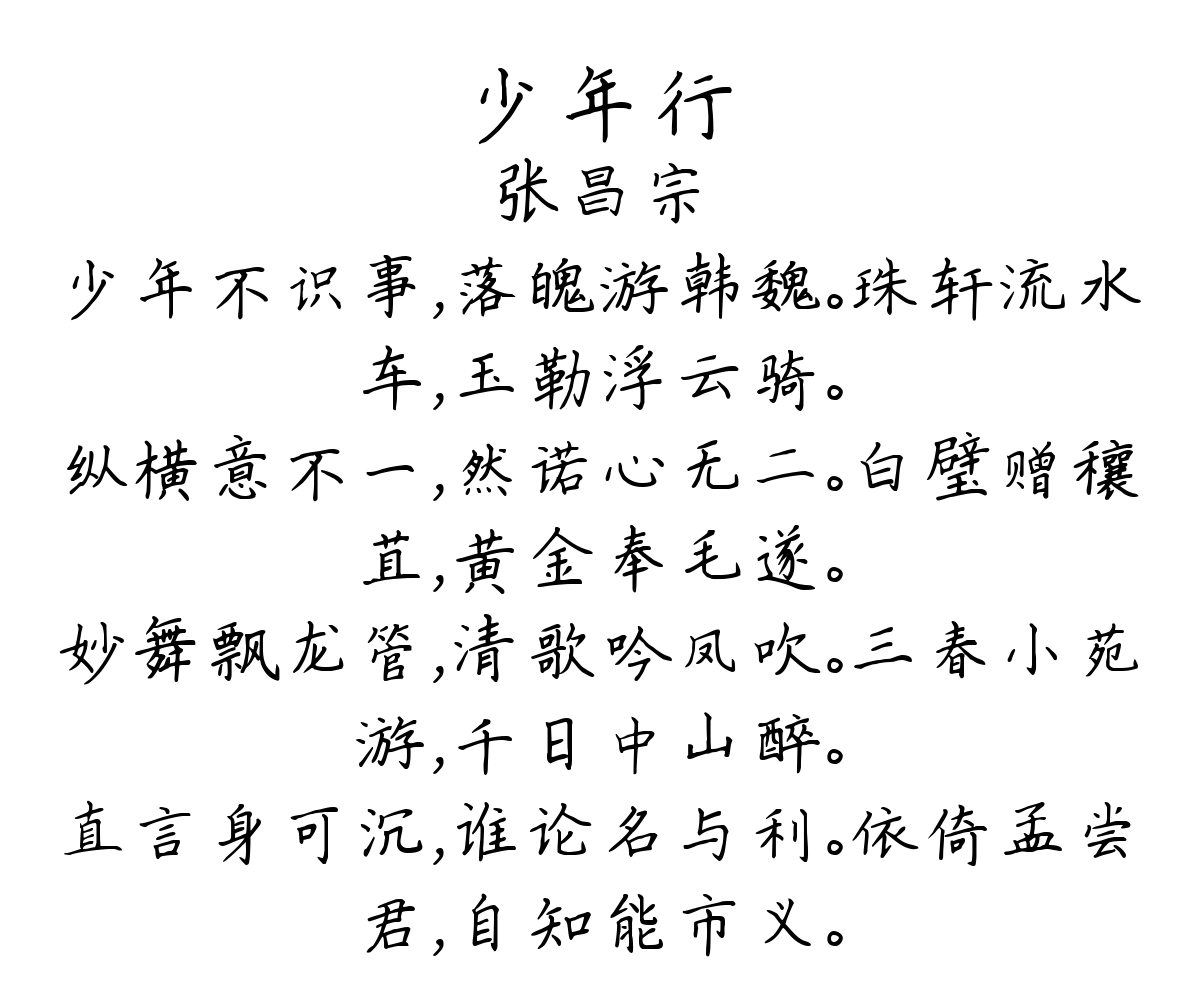 少年行
张昌宗
少年不识事,落魄游韩魏。珠轩流水
车,玉勒浮云骑。
纵横意不一,然诺心无二。白璧赠穰
苴,黄金奉毛遂。
妙舞飘龙管,清歌吟凤吹。三春小苑
游,千日中山醉。
直言身可沉,谁论名与利。依倚孟尝
君,自知能市义。